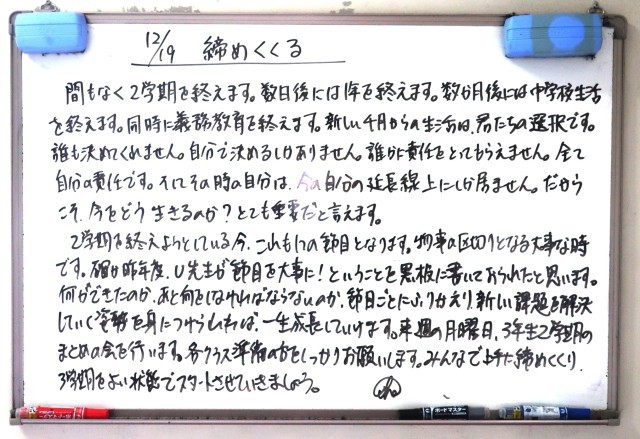 12/19 締めくくる
間もなく2学期を終えます。数日後には1年を終えます。数か月後には中学校生活
を終えます。同時に義務教育を終えます。新しい4月からの生活は、君たちの選択です。
誰も決めてくれません。自分で決めるしかありません。誰かに責任をとってもらえません。全て
自分の責任です。そしてその時の自分は、今の自分の延長線上にしか居ません。だから
こそ、今をどう生きるのか?とても重要だと言えます。
2学期を終えようとしている今、これも1つの節目となります。物事の区切りとなる大事な時
です。確か昨年度、U先生が「節目を大事に!」ということを黒板に書いておられたと思います。
何ができたのか、あと何をしなければならないのか、節目ごとにふりかえり、新しい課題を解決
していく姿勢を身につけられれば、一生成長していけます。来週の月曜日、3年生2学期の
まとめの会を行います。各クラス準備の方をしっかりお願いします。みんなで上手に締めくくり、
3学期をよい状態でスタートさせていきましょう。
ボードマスター